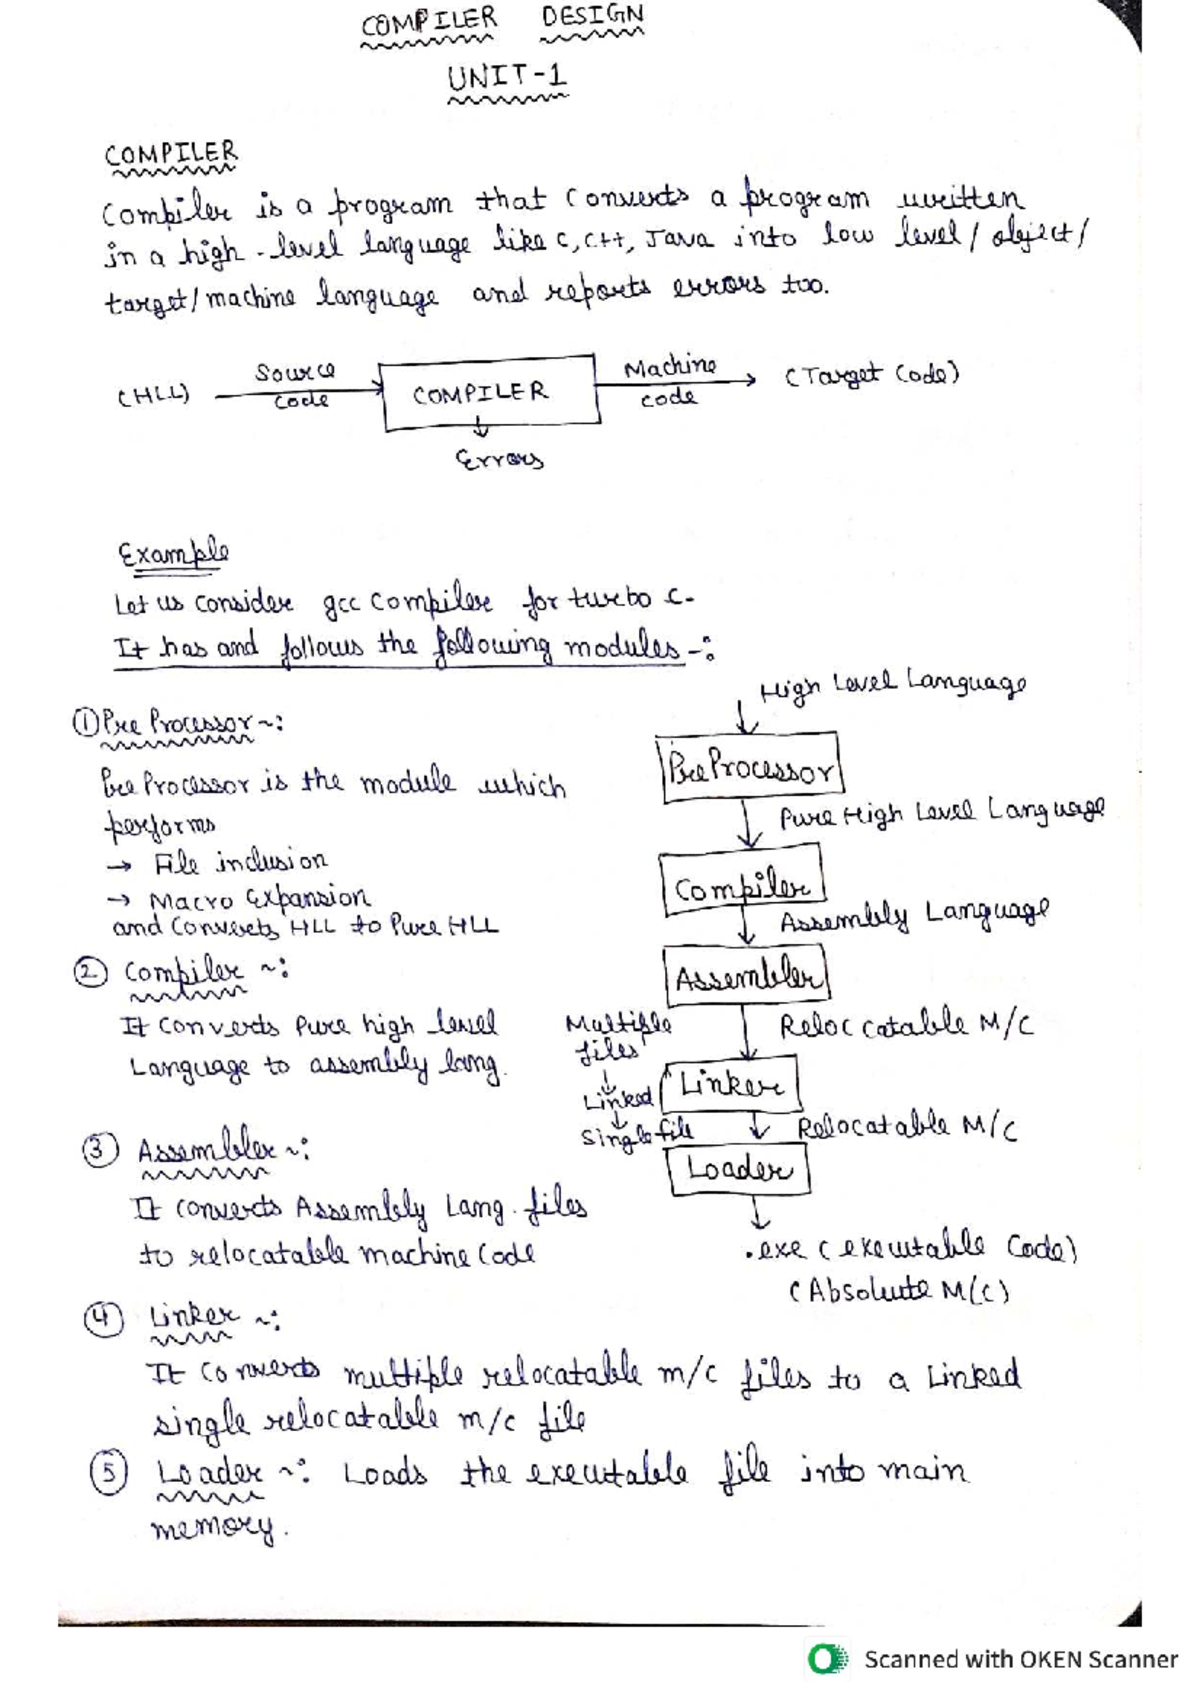 COMPILER DESIGN
UNIT-1
COMPILER
Compiler is a program that converts a program written
in a high-level language like C, C++, Java into low level/object/
target/machine language and reports errors too.
(HLL)
Source
Code
COMPILER
Machine
code
(Target Code)
Errors
Example
Let us consider gcc compiler for turbo C.
It has and follows the following modules -:
① Pre Processor ~:
Pre Processor is the module which
performs
→ File inclusion
→ Macro Expansion
and Converts HLL to Pure HLL
② Compiler ~:
It converts Pure high level
Language to assembly lang.
③ Assembler ~:
It converts Assembly Lang. files
to relocatable machine Code
High Level Language
PreProcessor
Pure High Level Language
Compiler
Assembly Language
Assembler
Reloccatable M/C
Multiple
files
Linked
Single file
Linker
Relocatable M/C
Loader
.exe (executable Code)
(Absolute M/C)
④ Linker ~:
It converts multiple relocatable m/c files to a Linked
single relocatable m/c file
⑤ Loader ~: Loads the executable file into main
memory.
Scanned with OKEN Scanner